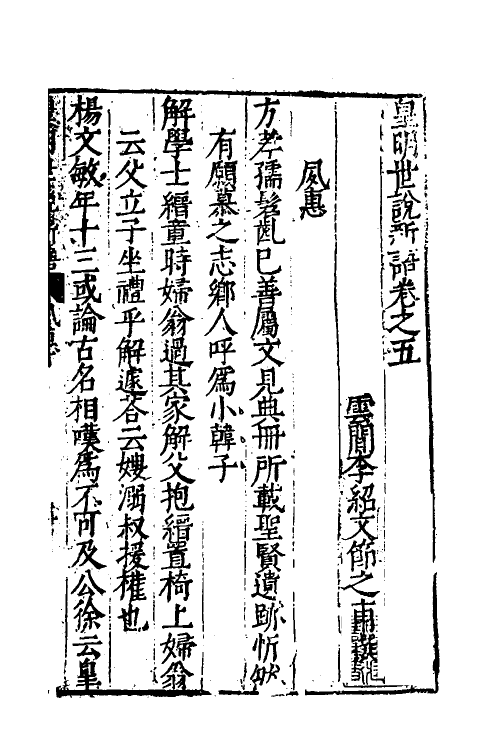 皇明世說新語卷之五
雲間李紹文節之甫撰
夙惠
方孝孺髫齔已善屬文見典冊所載聖賢遺跡忻然
有願慕之志鄉人呼爲小韓子
解學士縉童時婦翁過其家解父抱縉置椅上婦翁
云父立子坐禮乎解遽荅云嫂溺叔援權也
楊文敏年十三或論古名相嘆爲不可及公徐云皇